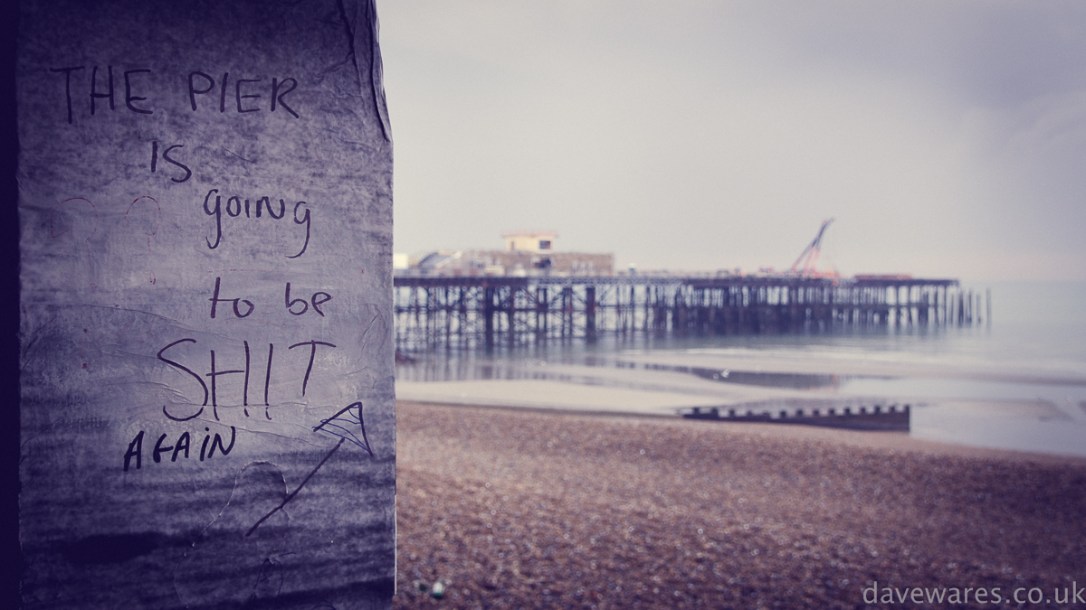 THE PIER
IS
going
to be
SHIT
AGAIN
davewares.co.uk